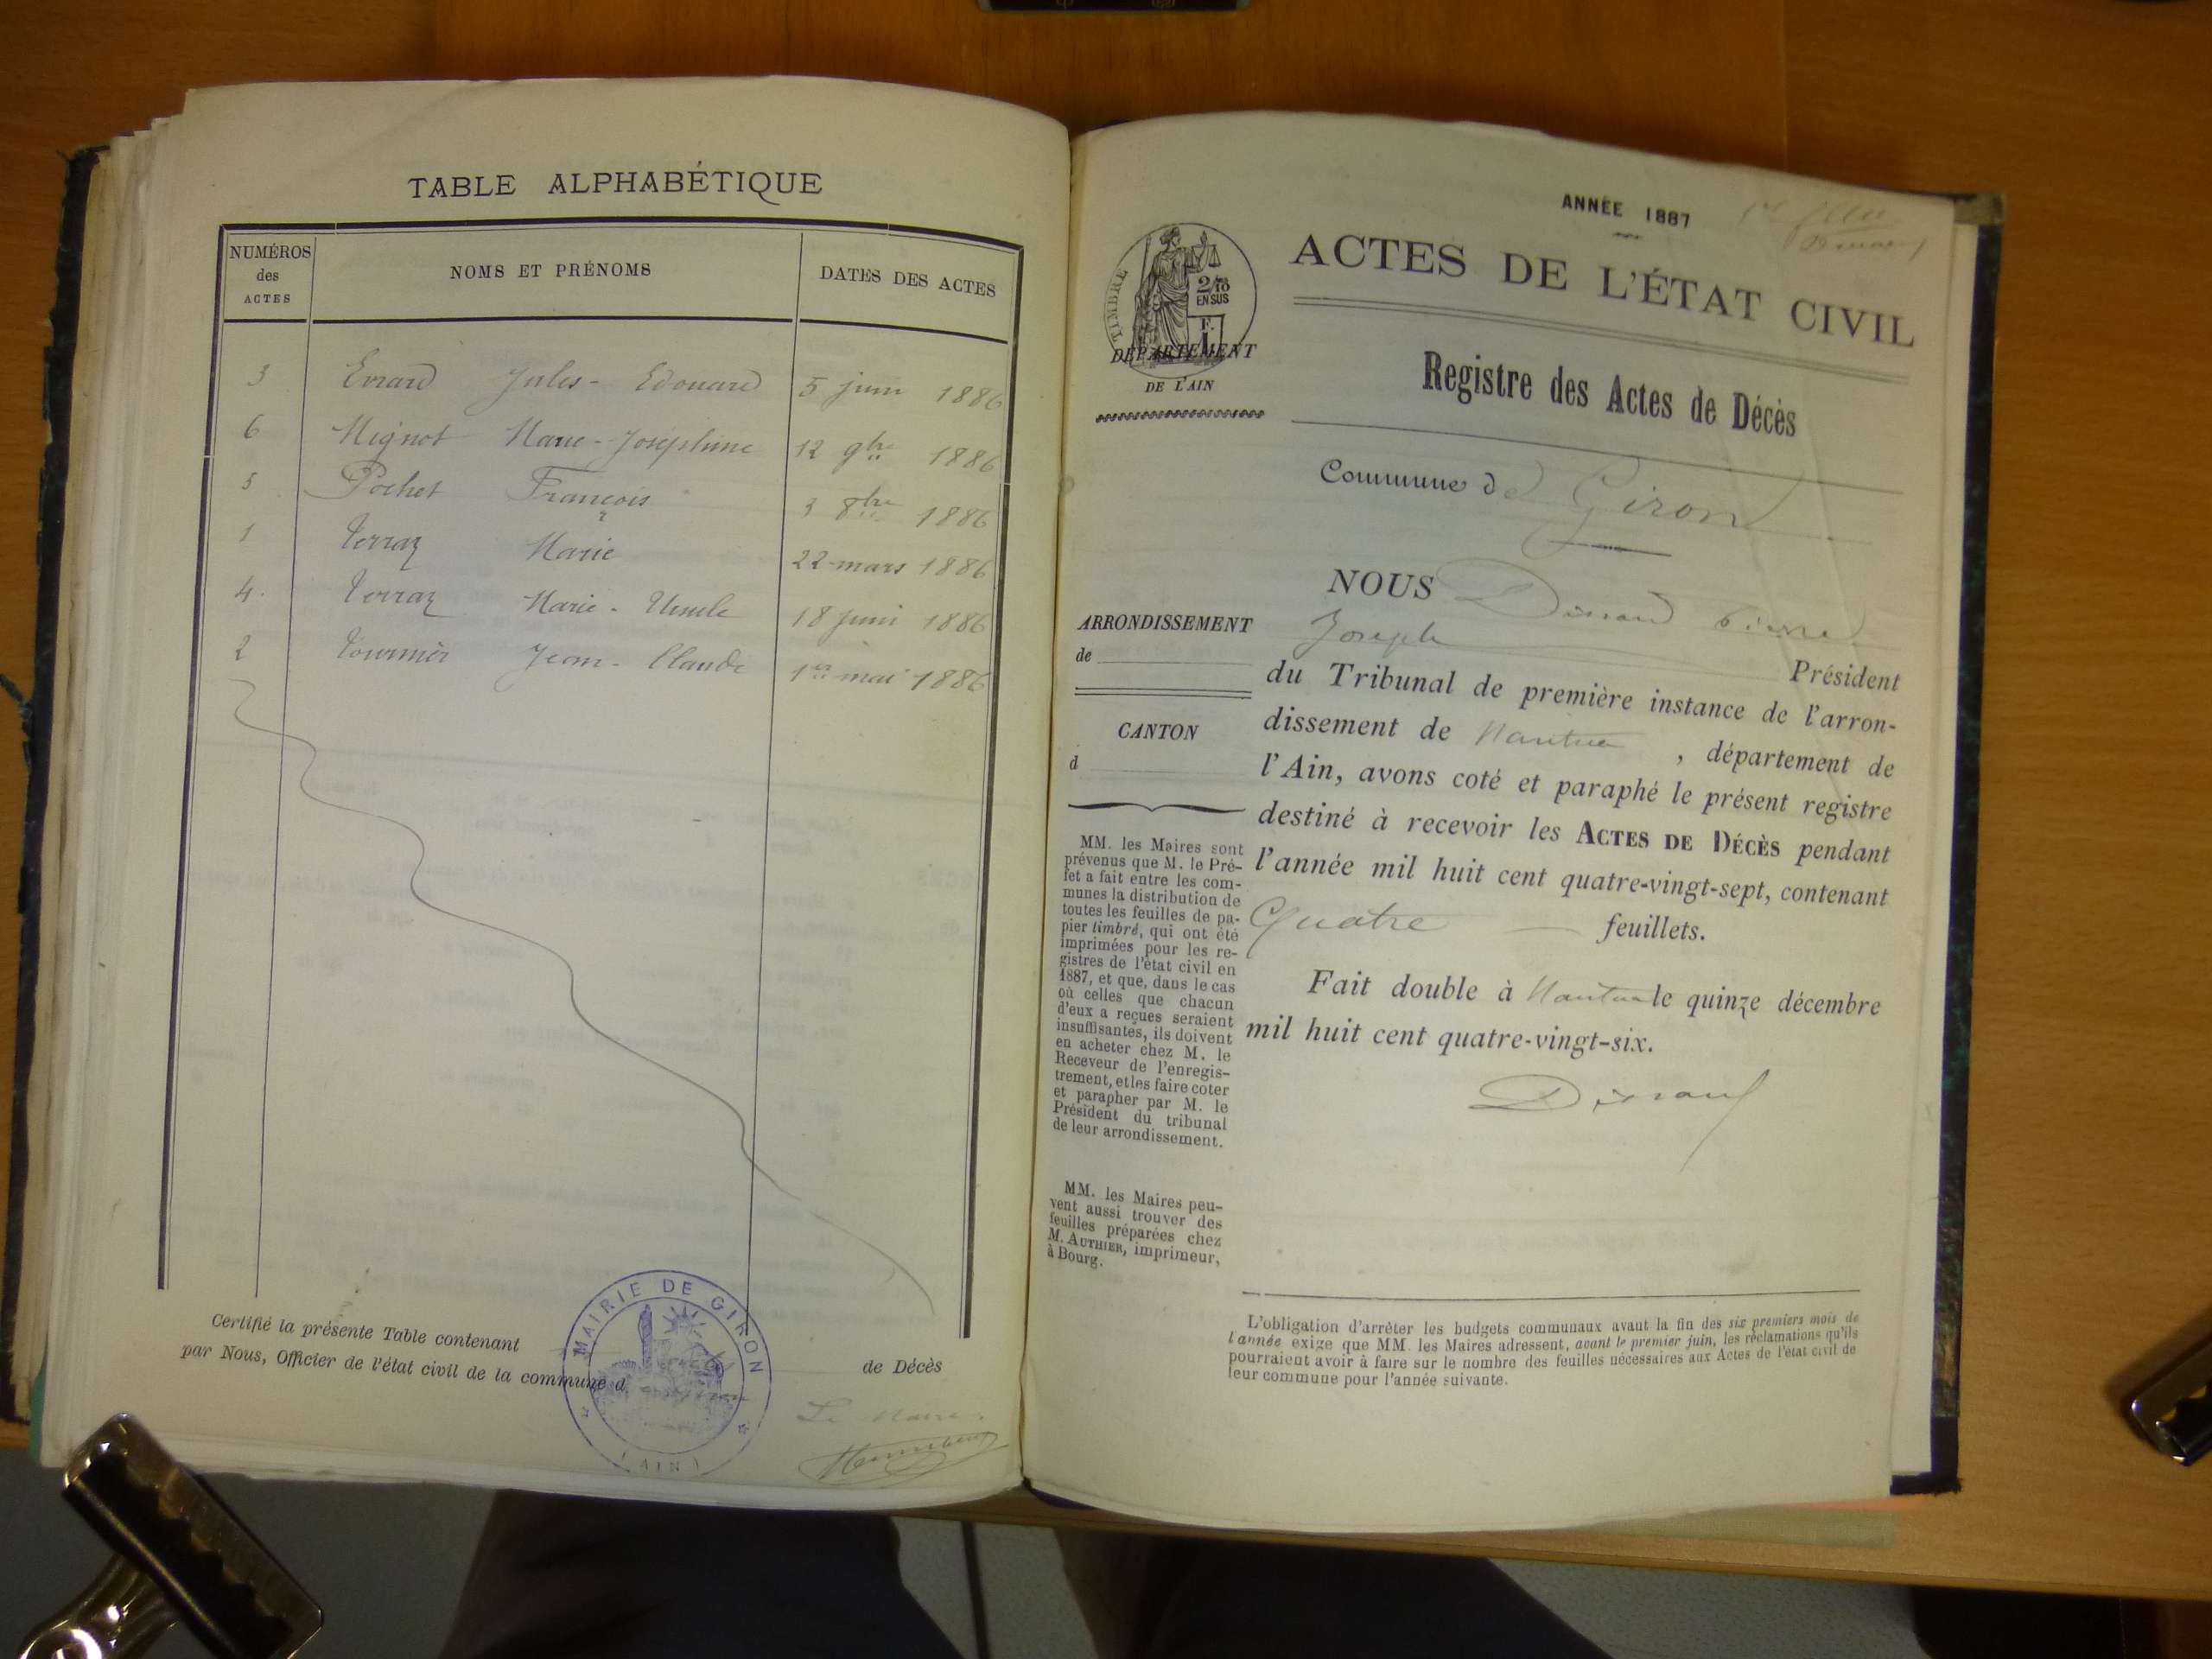 TABLE ALPHABÉTIQUE
NUMÉROS des ACTES
NOMS ET PRÉNOMS
DATES DES ACTES
3 Evrard Jules - Edouard 5 juin 1886
6 Mignot Marie - Joséphine 12 9bre 1886
5 Pochet François 3 8bre 1886
1 Verraz Marie 22 mars 1886
4. Verraz Marie - Ursule 18 Juin 1886
2 Tournier Jean - Claude 1er mai 1886
Certifié la présente Table contenant de Décès
par Nous, Officier de l'état civil de la commune d
MAIRIE DE GIRON
(AIN)
Le Maire.
ANNÉE 1887
ACTES DE L'ÉTAT CIVIL
TIMBRE
2/10
EN SUS
F.
1
DÉPARTEMENT
DE L'AIN
Registre des Actes de Décès
Commune de Giron
NOUS
Joseph Président
du Tribunal de première instance de l'arron-
dissement de Nantua, département de
l'Ain, avons coté et paraphé le présent registre
destiné à recevoir les ACTES DE DÉCÈS pendant
l'année mil huit cent quatre-vingt-sept, contenant
Quatre feuillets.
Fait double à Nantua le quinze décembre
mil huit cent quatre-vingt-six.
ARRONDISSEMENT
de
CANTON
d
MM. les Maires sont
prévenus que M. le Pré-
fet a fait entre les com-
munes la distribution de
toutes les feuilles de pa-
pier timbré, qui ont été
imprimées pour les re-
gistres de l'état civil en
1887, et que, dans le cas
où celles que chacun
d'eux a reçues seraient
insuffisantes, ils doivent
en acheter chez M. le
Receveur de l'enregis-
trement, et les faire coter
et parapher par M. le
Président du tribunal
de leur arrondissement.
MM. les Maires peu-
vent aussi trouver des
feuilles préparées chez
M. AUTHIER, imprimeur,
à Bourg.
L'obligation d'arrêter les budgets communaux avant la fin des six premiers mois de
l'année exige que MM. les Maires adressent, avant le premier juin, les réclamations qu'ils
pourraient avoir à faire sur le nombre des feuilles nécessaires aux Actes de l'état civil de
leur commune pour l'année suivante.